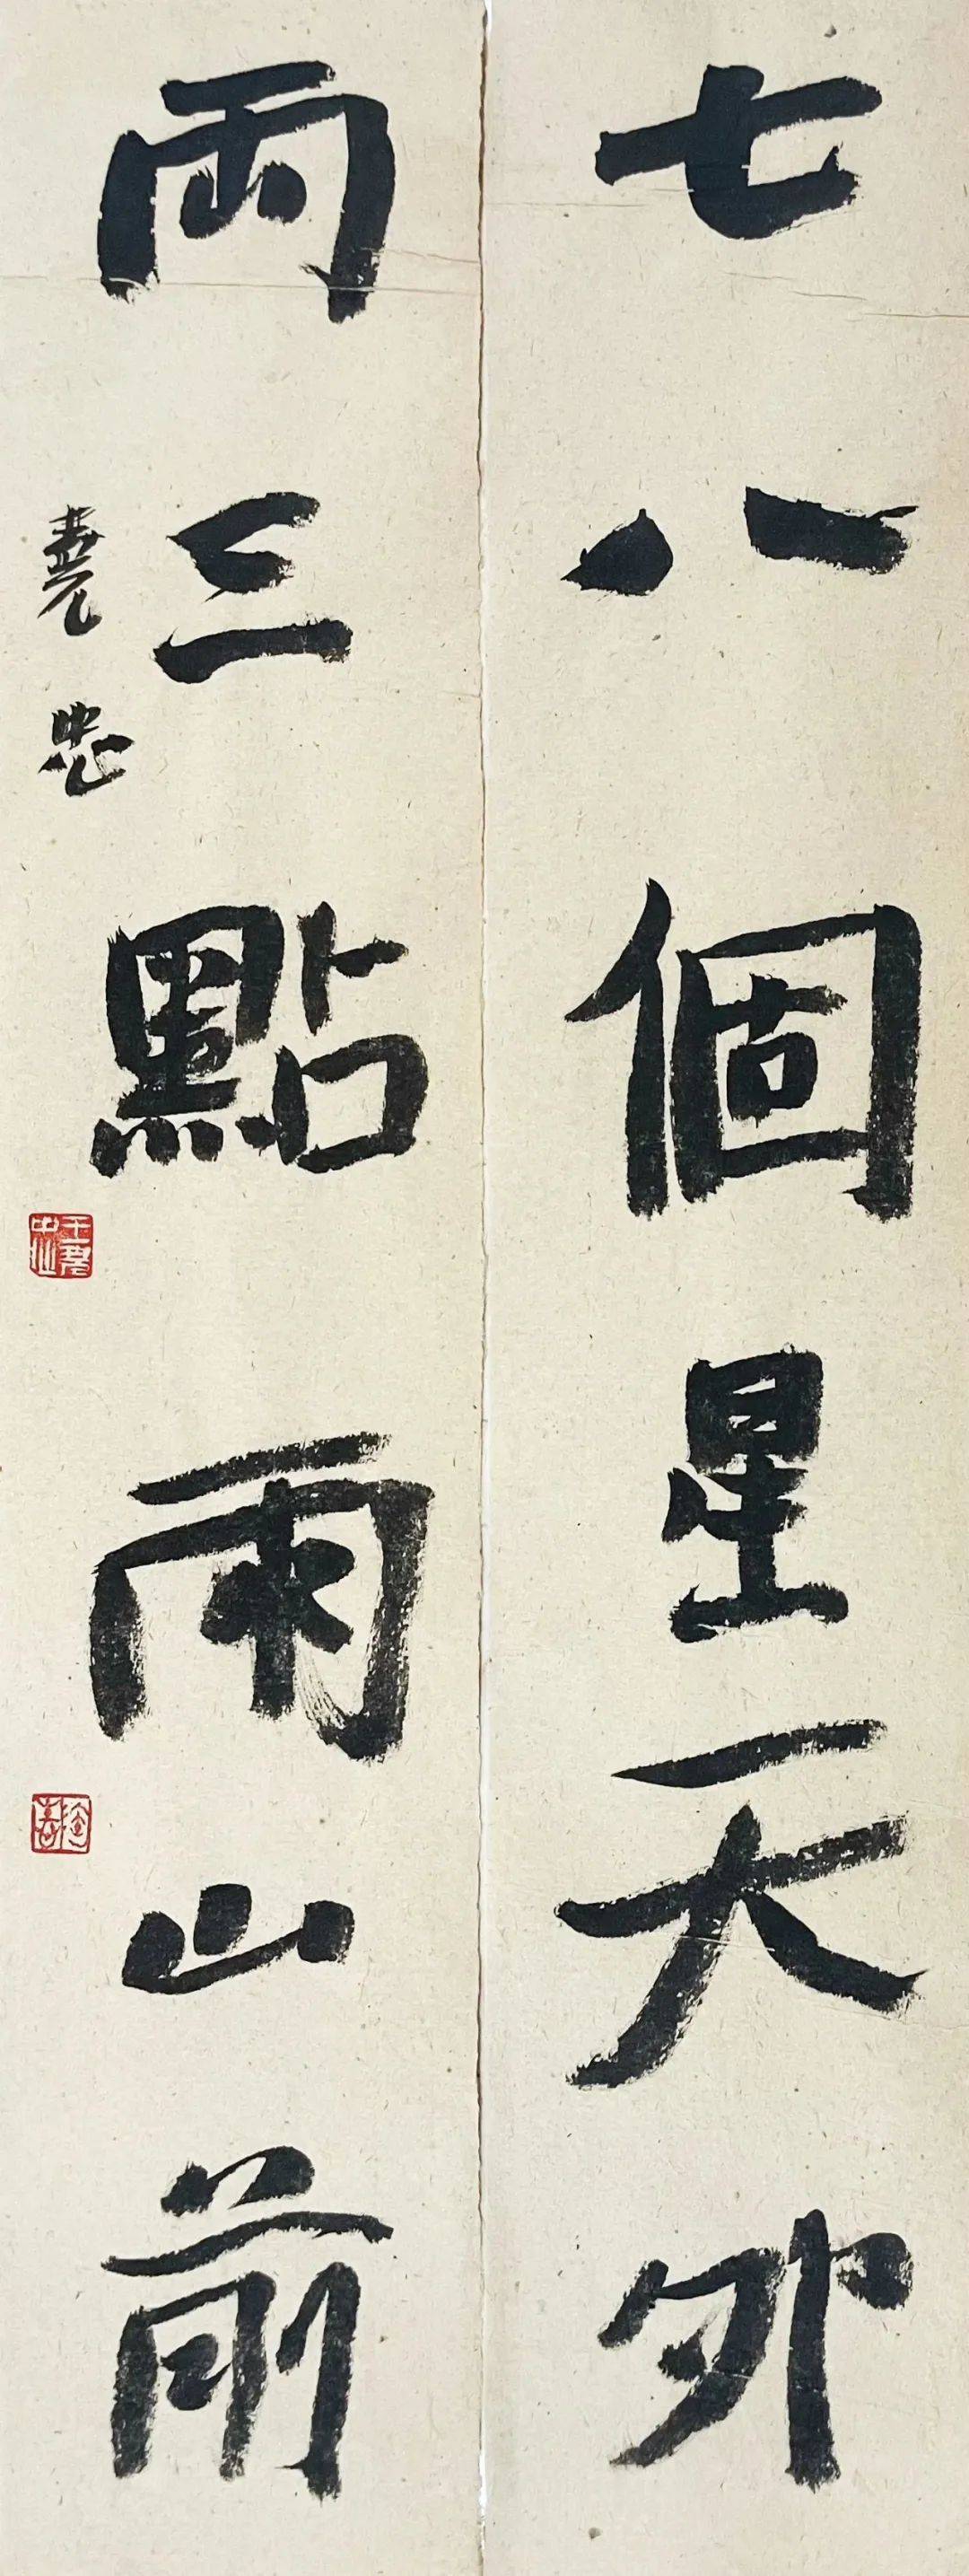 七八個星天外
兩三點雨山前
堯忠